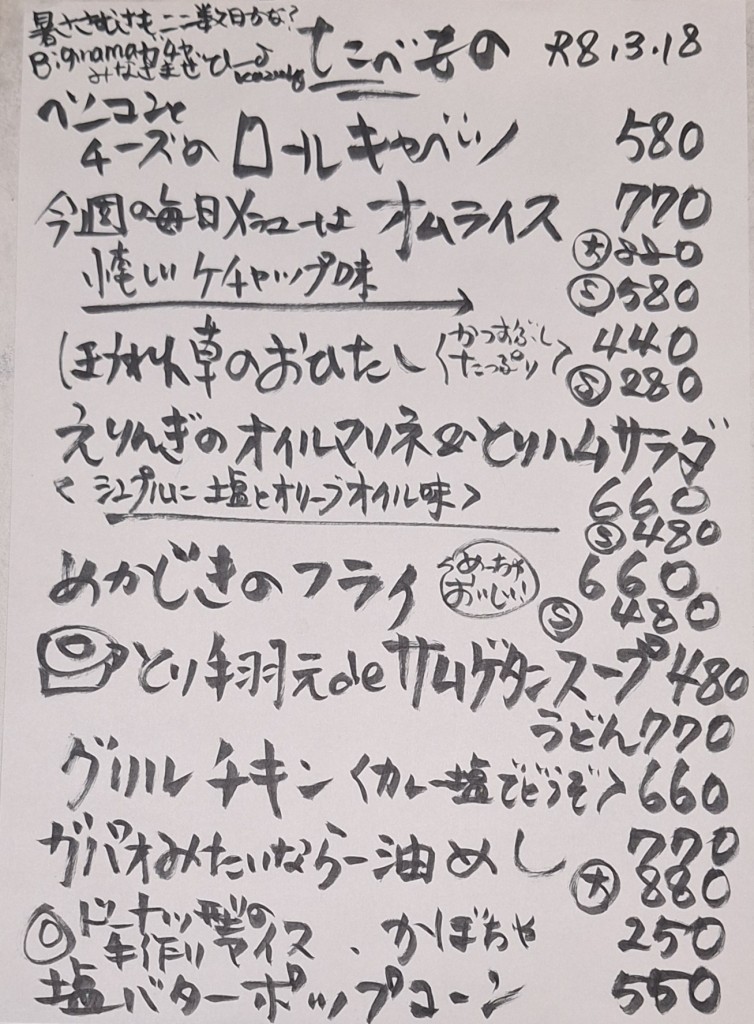 暑ささむさも、ここ数日かな?
Biginamaりイヤ
みなさませ ひー♪
たべもの R8.3.18
ベーコンと
チーズのロールキャベツ 580
今週の毎日メニューは オムライス 770
大 880
懐しいケチャップ味 S 580
ほうれん草のおひたし〈かつおぶし たっぷり〉 440
S 280
えりんぎのオイルマリネ&とりハムサラダ
〈シンプルに塩とオリーブオイル味〉 660
S 480
めかじきのフライ めーちゃ おいしい 660
S 480
とり手羽元deサムゲタンスープ 480
うどん770
グリルチキン〈カレー塩でどうぞ〉 660
ガパオみたいならー油めし 770
大 880
ドーナッツ型の
手作りアイス、かぼちゃ 250
塩バターポップコーン 550